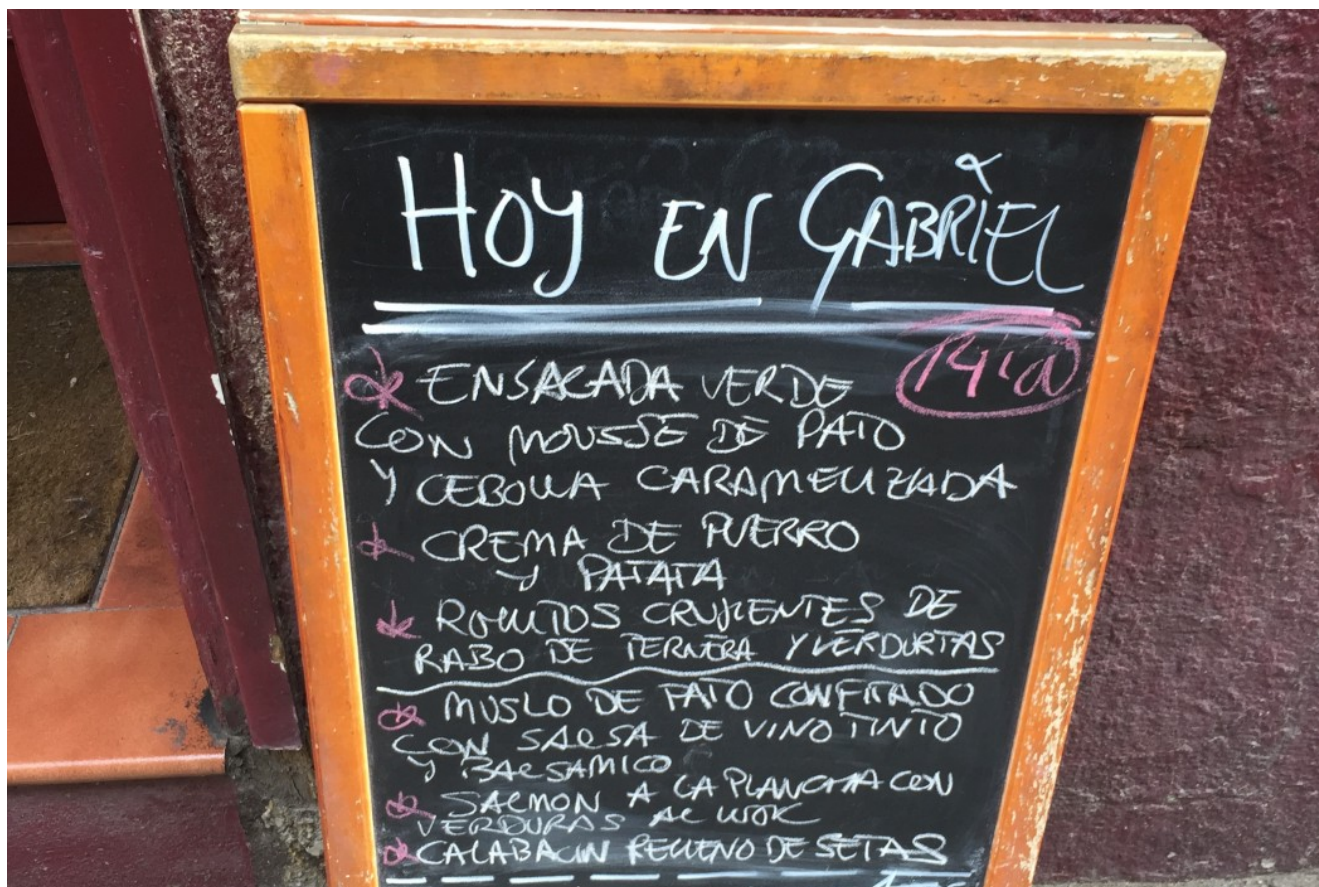 HOY EN GABRIEL
ENSALADA VERDE
CON MOUSSE DE PATO
Y CEBOLLA CARAMELIZADA
CREMA DE PUERRO
Y PATATA
ROLLITOS CRUJIENTES DE
RABO DE TERNERA Y VERDURITAS
MUSLO DE PATO CONFITADO
CON SALSA DE VINO TINTO
Y BALSAMICO
SALMON A LA PLANCHA CON
VERDURAS AL WOK
CALABACIN RELLENO DE SETAS